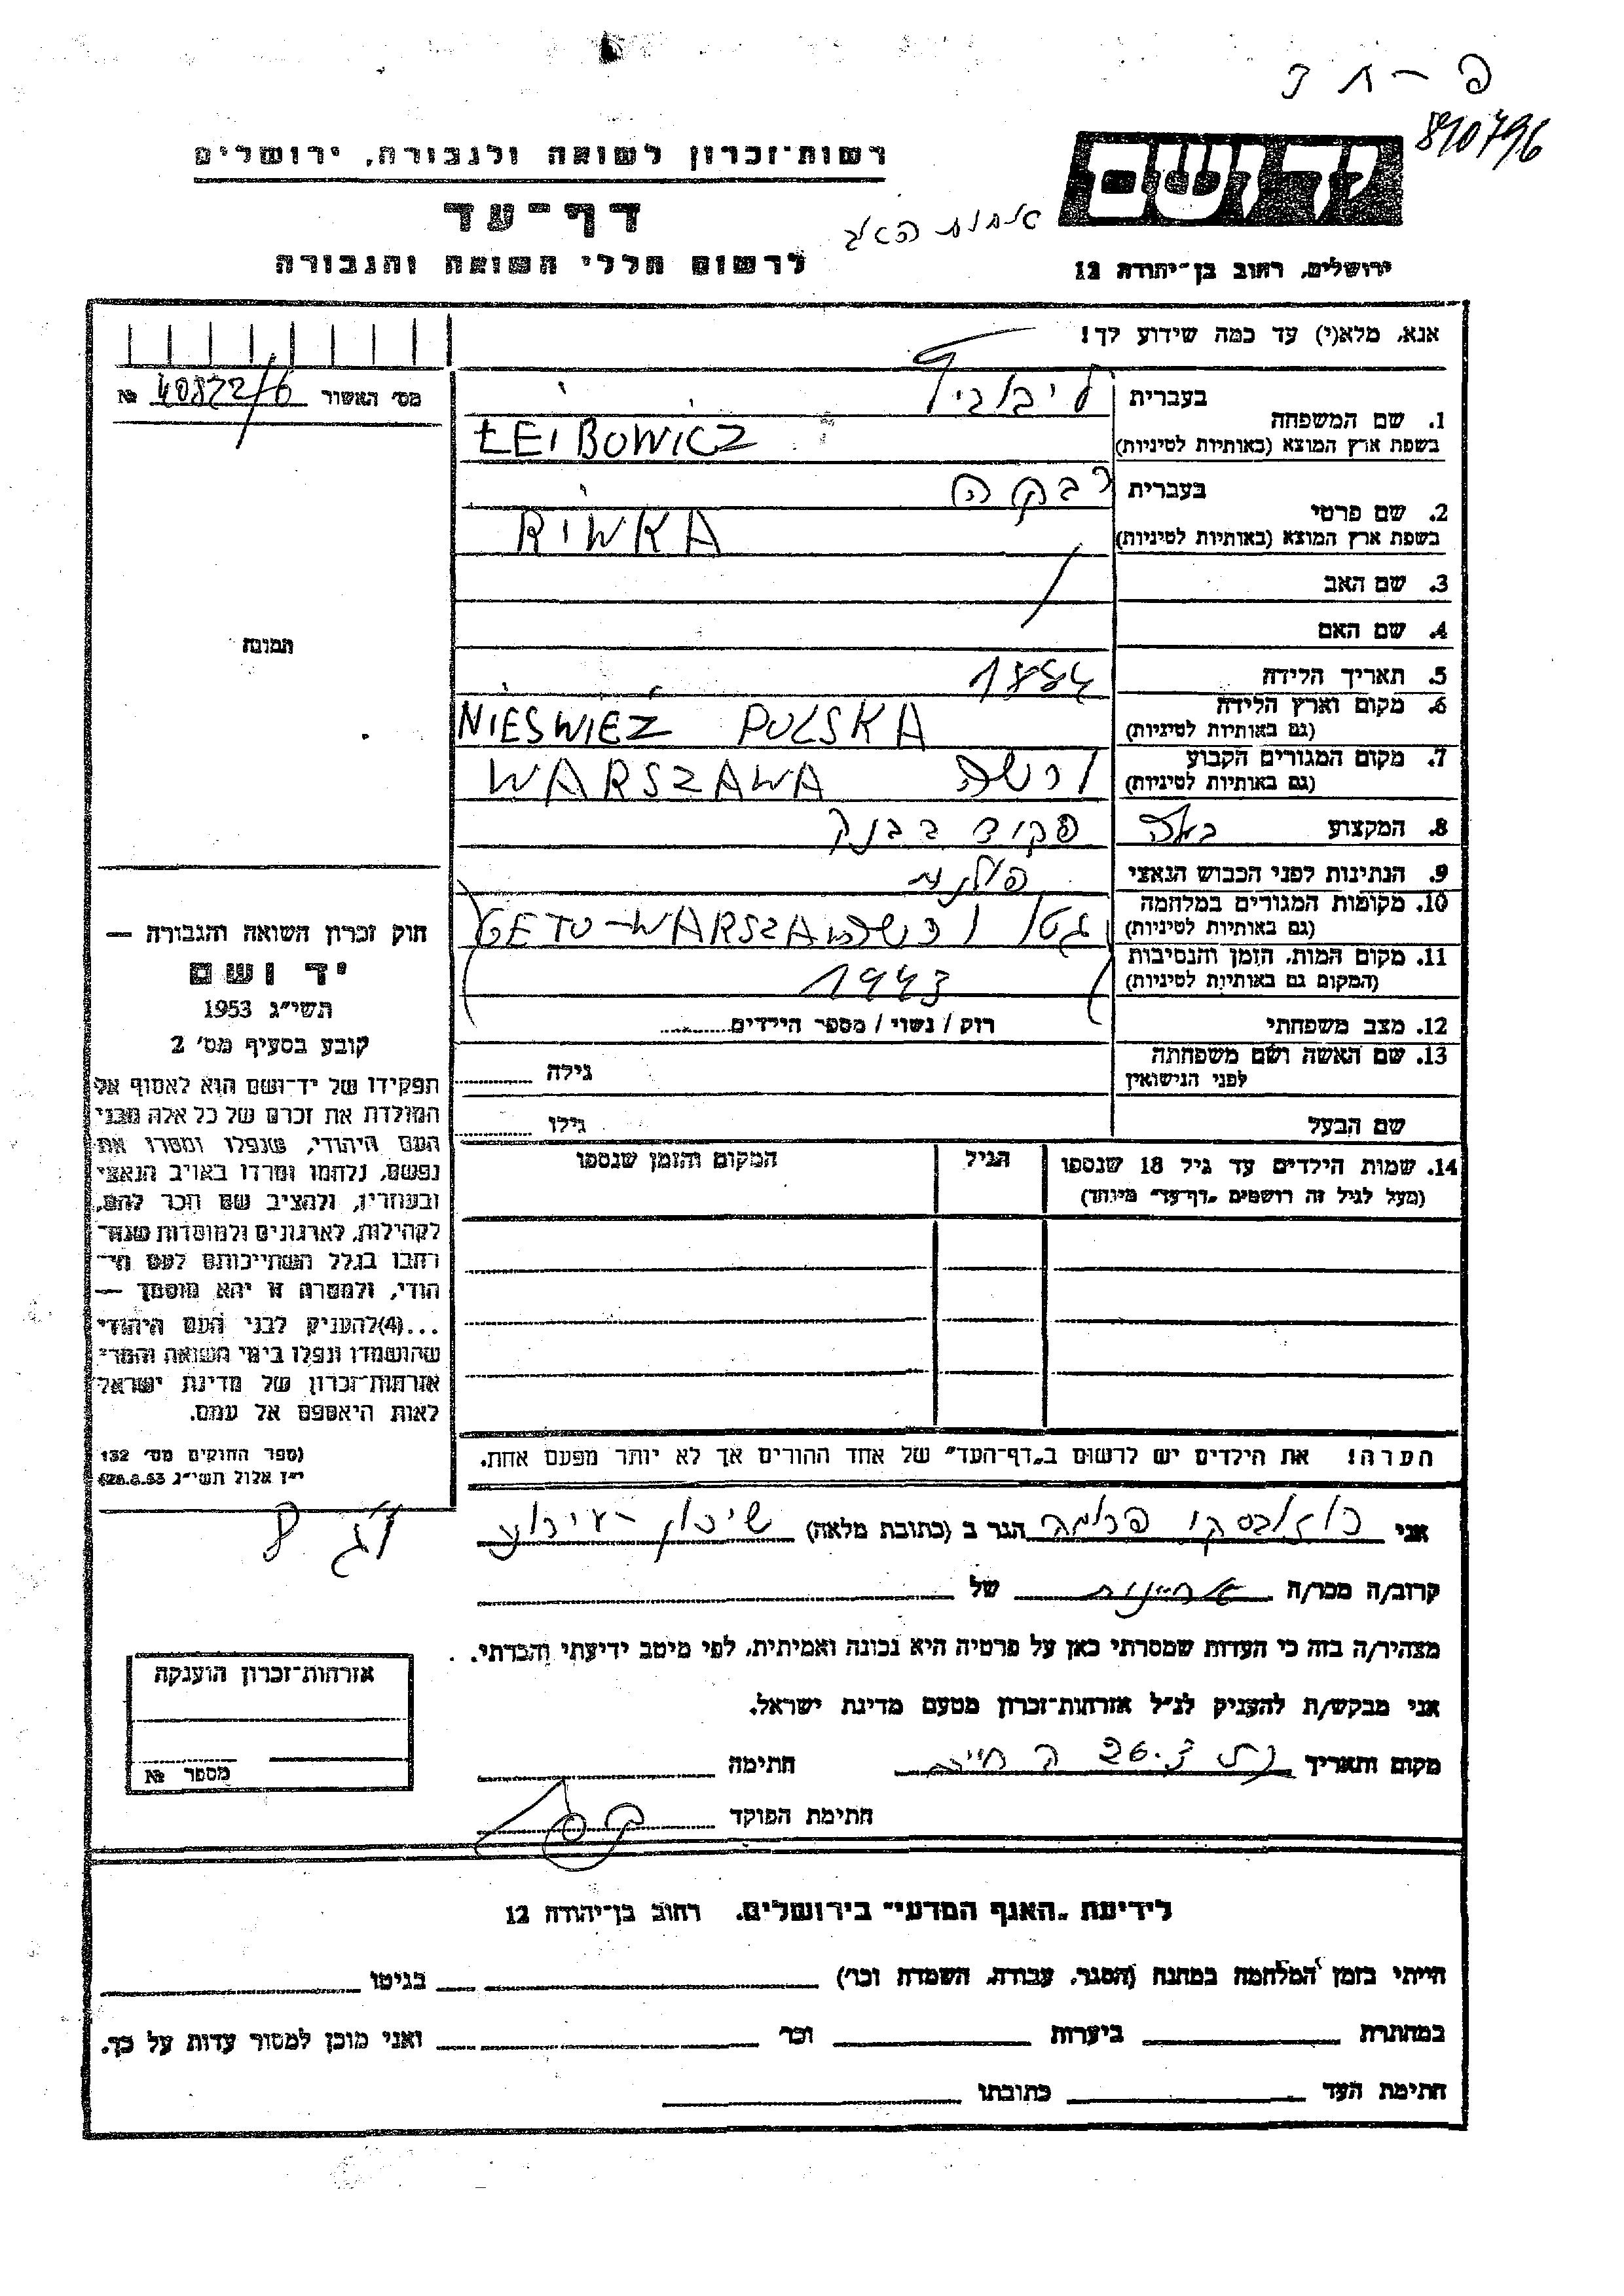 פ - ת ד
890796
רשות־זכרון לשואה ולגבורה, ירושלים
יד ושם
דף־עד
אחות האב
לרשום חללי השואה והגבורה
ירושלים, רחוב בן־יהודה 12
אנא, מלא(י) עד כמה שידוע לך!
מס׳ האשור 40822/6 №
1. שם המשפחה
בעברית ליבוביץ
בשפת ארץ המוצא (באותיות לטיניות) ŁEIBOWICZ
2. שם פרטי
בעברית רבקה
בשפת ארץ המוצא (באותיות לטיניות) RIWKA
3. שם האב
4. שם האם
התמונה
5. תאריך הלידה 1884
6. מקום וארץ הלידה
(גם באותיות לטיניות) NIESWIEŻ POLSKA
7. מקום המגורים הקבוע
(גם באותיות לטיניות) ורשה WARSZAWA
8. המקצוע פקיד בבנק
9. הנתינות לפני הכבוש הנאצי פולנית
10. מקומות המגורים במלחמה
(גם באותיות לטיניות) גטו ורשה GETO-WARSZAW
11. מקום המות, הזמן והנסיבות
(המקום גם באותיות לטיניות) 1943
12. מצב משפחתי רווק / נשוי / מספר הילדים
13. שם האשה ושם משפחתה
לפני הנישואין גילה
שם הבעל גילו
14. שמות הילדים עד גיל 18 שנספו הגיל המקום והזמן שנספו
(מעל לגיל זה רושמים „דף־עד״ מיוחד)
חוק זכרון השואה והגבורה —
יד ושם
תשי״ג 1953
קובע בסעיף מס׳ 2
תפקידו של יד־ושם הוא לאסוף אל
המולדת את זכרם של כל אלה מבני
העם היהודי, שנפלו ומסרו את
נפשם, נלחמו ומרדו באויב הנאצי
ובעוזריו, ולהציב שם וזכר להם,
לקהילות, לארגונים ולמוסדות שנח־
רבו בגלל השתייכותם לעם הי־
הודי, ולמטרה זו יהא מוסמך —
...(4)להעניק לבני העם היהודי
שהושמדו ונפלו בימי השואה והמרי
אזרחות־זכרון של מדינת ישראל
לאות היאספם אל עמם.
(ספר החוקים מס׳ 132
י״ז אלול תשי״ג 28.8.53)
הערה! את הילדים יש לרשום ב„דף־העד״ של אחד ההורים אך לא יותר מפעם אחת.
אני הגר ב (כתובת מלאה) שיכון
קרוב/ה מכר/ה אחיינית של
מצהיר/ה בזה כי העדות שמסרתי כאן על פרטיה היא נכונה ואמיתית, לפי מיטב ידיעתי והכרתי.
אני מבקש/ת להעניק לנ״ל אזרחות־זכרון מטעם מדינת ישראל.
מקום ותאריך חתימה
חתימת הפוקד
אזרחות־זכרון הוענקה
מספר №
לידיעת „האגף המדעי״ בירושלים, רחוב בן־יהודה 12
הייתי בזמן המלחמה במחנה (הסגר, עבודה, השמדה וכו׳) בגיטו
במחתרת ביערות וכו׳ ואני מוכן למסור עדות על כך.
חתימת העד כתובתו